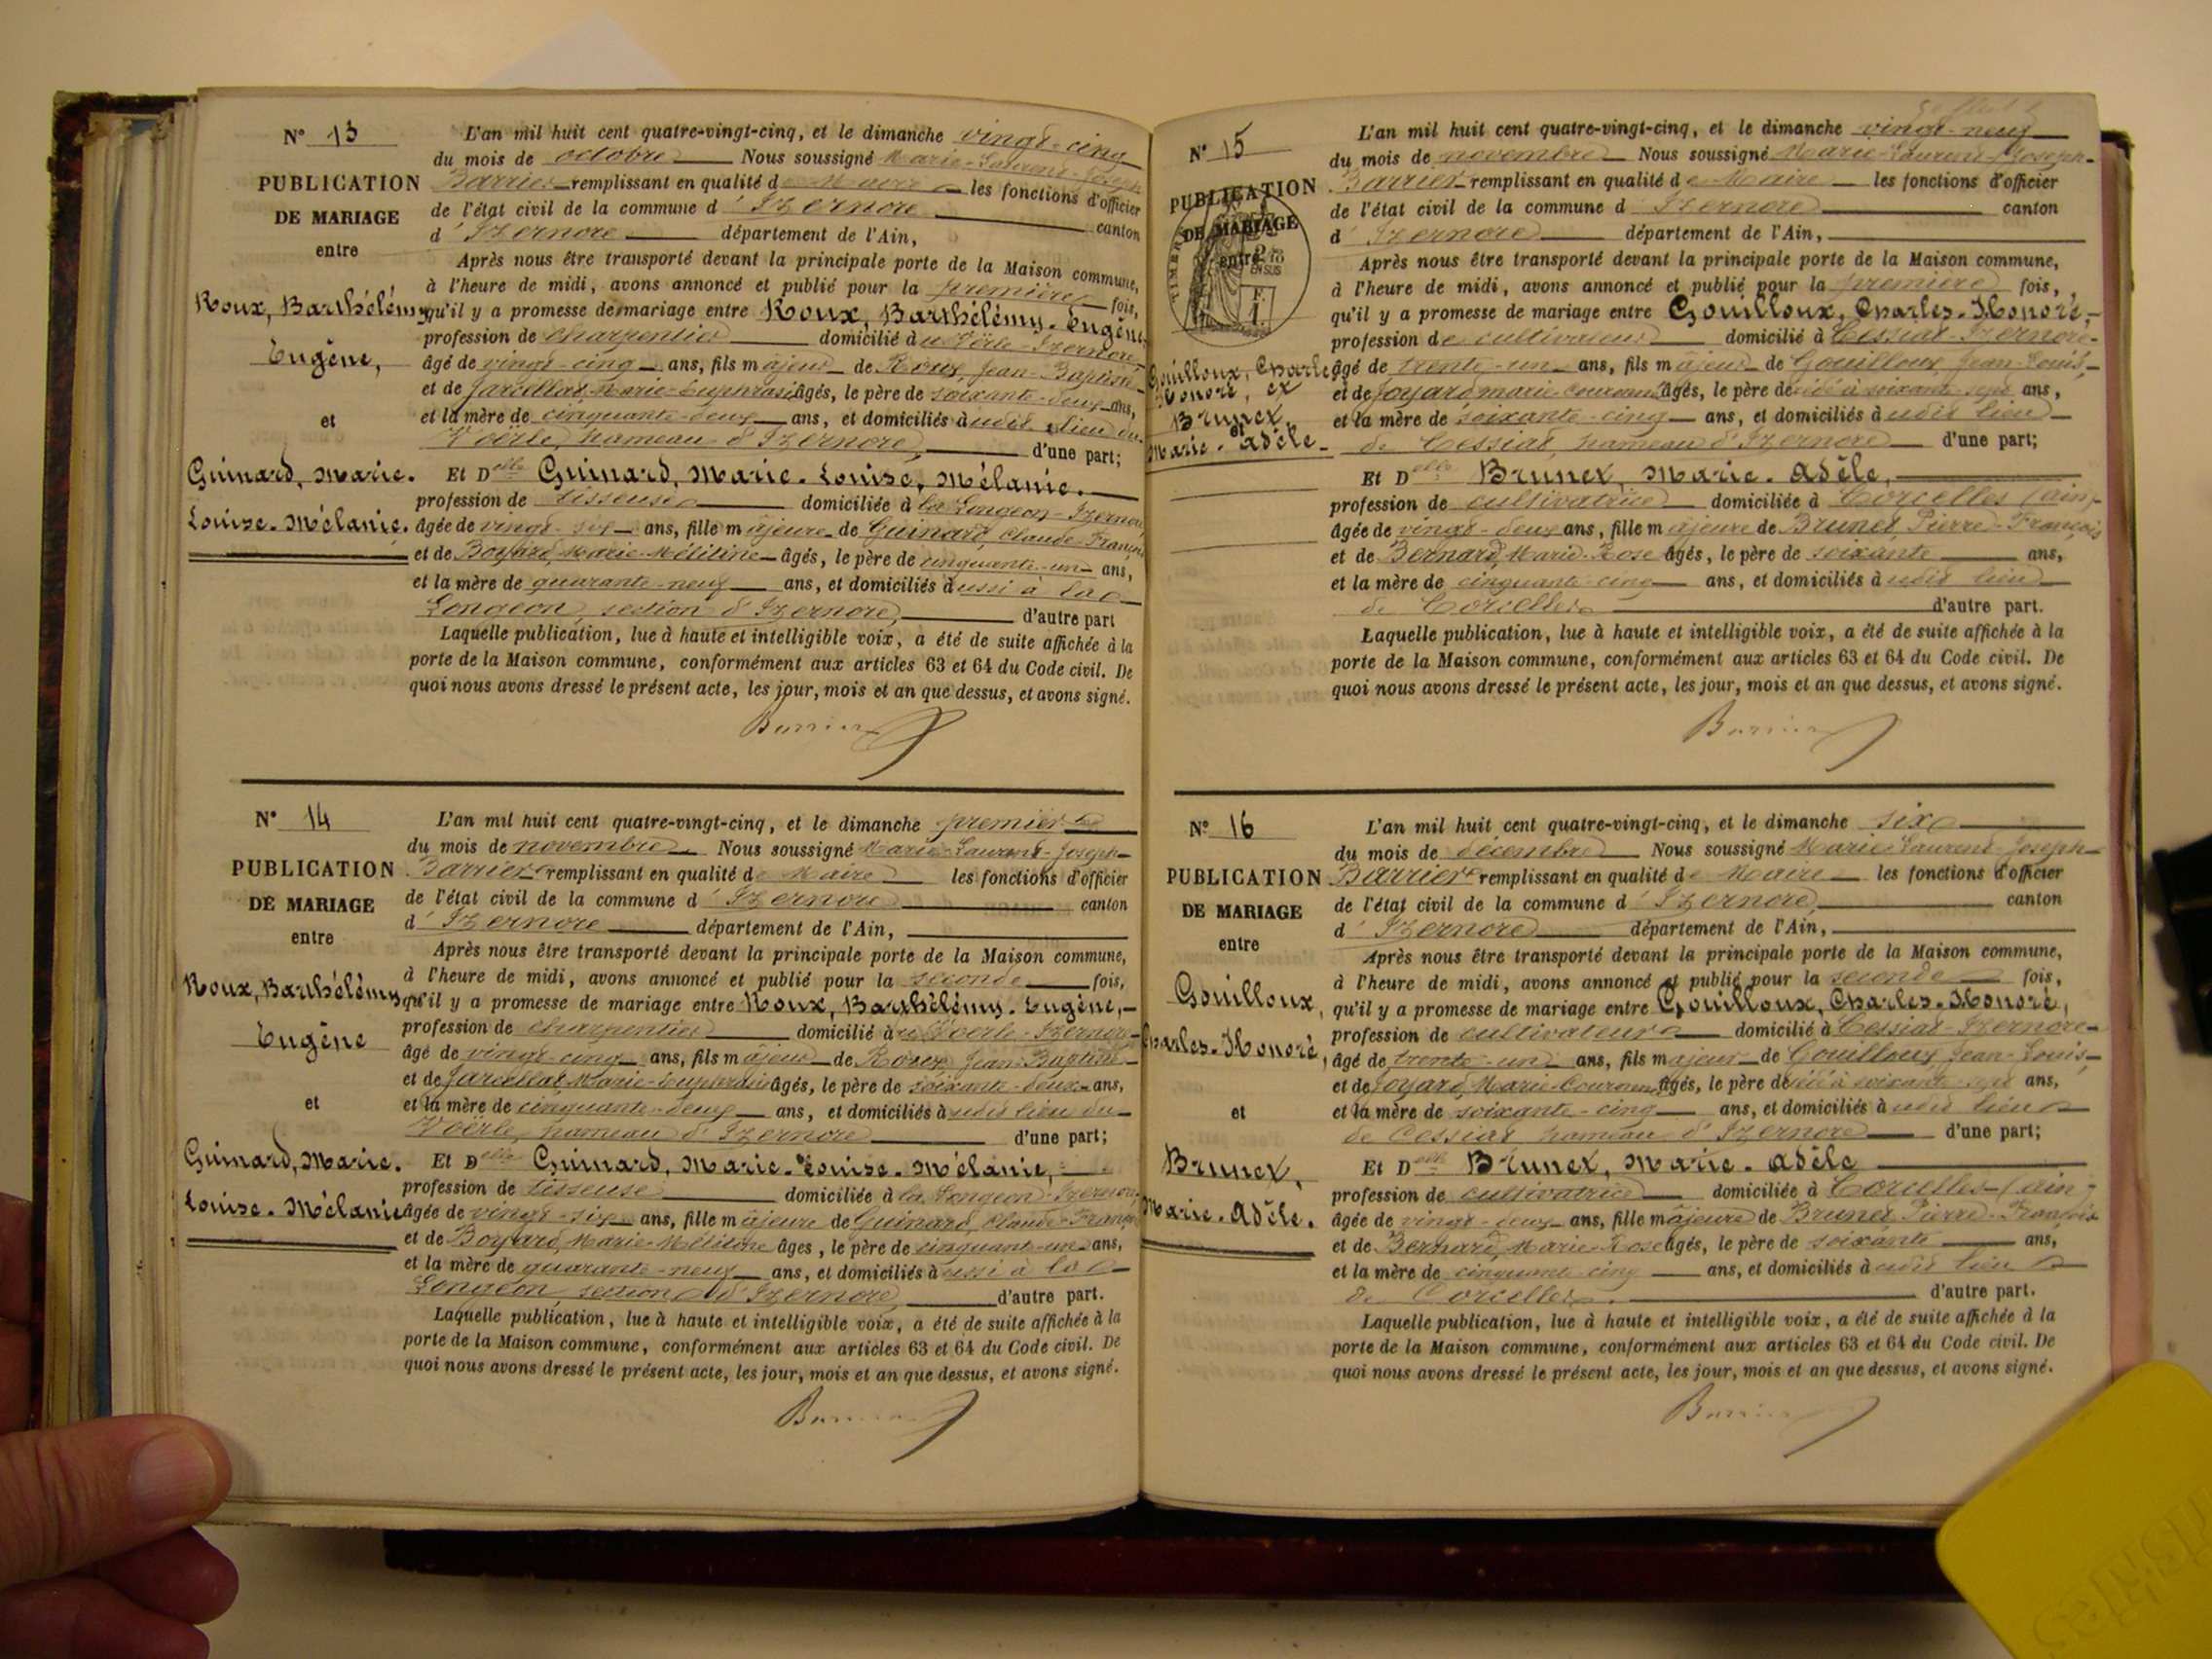 N° 13
PUBLICATION
DE MARIAGE
entre
Roux, Barthélémy
Eugène,
et
Guinard, Marie.
Louise. Mélanie.
L'an mil huit cent quatre-vingt-cinq, et le dimanche vingt-cinq
du mois de octobre Nous soussigné Marie-Laurent-Joseph
Barrier remplissant en qualité de Maire les fonctions d'officier
de l'état civil de la commune d'Izernore canton
d'Izernore département de l'Ain,
Après nous être transporté devant la principale porte de la Maison commune,
à l'heure de midi, avons annoncé et publié pour la première fois,
qu'il y a promesse de mariage entre Roux, Barthélémy. Eugène
profession de charpentier domicilié à Voërle-Izernore
âgé de vingt-cinq ans, fils majeur de Roux Jean-Baptiste
et de Jarcellat Marie-Euphrasie âgés, le père de soixante-deux ans,
et la mère de cinquante-deux ans, et domiciliés audit lieu du
Voërle, hameau d'Izernore, d'une part;
Et Delle Guinard, Marie. Louise, Mélanie.
profession de tisseuse domiciliée à la Longeon-Izernore
âgée de vingt-six ans, fille majeure de Guinard, Claude-François
et de Boyard, Marie-Mélitine âgés, le père de cinquante-un ans,
et la mère de quarante-neuf ans, et domiciliés aussi à la
Longeon, section d'Izernore, d'autre part
Laquelle publication, lue à haute et intelligible voix, a été de suite affichée à la
porte de la Maison commune, conformément aux articles 63 et 64 du Code civil. De
quoi nous avons dressé le présent acte, les jour, mois et an que dessus, et avons signé.
Barrier
N° 14
PUBLICATION
DE MARIAGE
entre
Roux, Barthélémy
Eugène
et
Guinard, Marie.
Louise. Mélanie
L'an mil huit cent quatre-vingt-cinq, et le dimanche premier
du mois de novembre Nous soussigné Marie-Laurent-Joseph
Barrier remplissant en qualité de Maire les fonctions d'officier
de l'état civil de la commune d'Izernore canton
d'Izernore département de l'Ain,
Après nous être transporté devant la principale porte de la Maison commune,
à l'heure de midi, avons annoncé et publié pour la seconde fois,
qu'il y a promesse de mariage entre Roux, Barthélémy. Eugène,
profession de charpentier domicilié à Voërle-Izernore
âgé de vingt-cinq ans, fils majeur de Roux Jean-Baptiste
et de Jarcellat Marie-Euphrasie âgés, le père de soixante-deux ans,
et la mère de cinquante-deux ans, et domiciliés audit lieu du
Voërle, hameau d'Izernore d'une part;
Et Delle Guinard, Marie. Louise. Mélanie,
profession de tisseuse domiciliée à la Longeon-Izernore
âgée de vingt-six ans, fille majeure de Guinard, Claude-François
et de Boyard, Marie-Mélitine âges, le père de cinquante-un ans,
et la mère de quarante-neuf ans, et domiciliés aussi à la
Longeon, section d'Izernore, d'autre part.
Laquelle publication, lue à haute et intelligible voix, a été de suite affichée à la
porte de la Maison commune, conformément aux articles 63 et 64 du Code civil. De
quoi nous avons dressé le présent acte, les jour, mois et an que dessus, et avons signé.
Barrier
N° 15
PUBLICATION
DE MARIAGE
entre
TIMBRE
EN SUS
Gouilloux, Charles
Honoré, et
Brunet
Marie. Adèle.
L'an mil huit cent quatre-vingt-cinq, et le dimanche vingt-neuf
du mois de novembre Nous soussigné Marie-Laurent-Joseph
Barrier remplissant en qualité de Maire les fonctions d'officier
de l'état civil de la commune d'Izernore canton
d'Izernore département de l'Ain,
Après nous être transporté devant la principale porte de la Maison commune,
à l'heure de midi, avons annoncé et publié pour la première fois,
qu'il y a promesse de mariage entre Gouilloux, Charles. Honoré,
profession de cultivateur domicilié à Cessiat-Izernore
âgé de trente-un ans, fils majeur de Gouilloux Jean-Louis
et de Joyard Marie âgés, le père décédé à soixante-sept ans,
et la mère de soixante-cinq ans, et domiciliés audit lieu
de Cessiat, hameau d'Izernore d'une part;
Et Delle Brunet, Marie. Adèle,
profession de cultivatrice domiciliée à Corcelles (ain)
âgée de vingt-deux ans, fille majeure de Brunet Pierre-François
et de Bernard, Marie-Rose âgés, le père de soixante ans,
et la mère de cinquante-cinq ans, et domiciliés audit lieu
de Corcelles d'autre part.
Laquelle publication, lue à haute et intelligible voix, a été de suite affichée à la
porte de la Maison commune, conformément aux articles 63 et 64 du Code civil. De
quoi nous avons dressé le présent acte, les jour, mois et an que dessus, et avons signé.
Barrier
N° 16
PUBLICATION
DE MARIAGE
entre
Gouilloux,
Charles. Honoré,
et
Brunet,
Marie. Adèle.
L'an mil huit cent quatre-vingt-cinq, et le dimanche six
du mois de décembre Nous soussigné Marie Laurent-Joseph
Barrier remplissant en qualité de Maire les fonctions d'officier
de l'état civil de la commune d'Izernore, canton
d'Izernore département de l'Ain,
Après nous être transporté devant la principale porte de la Maison commune,
à l'heure de midi, avons annoncé et publié pour la seconde fois,
qu'il y a promesse de mariage entre Gouilloux, Charles. Honoré,
profession de cultivateur domicilié à Cessiat-Izernore
âgé de trente-un ans, fils majeur de Gouilloux Jean-Louis
et de Joyard, Marie âgés, le père décédé à soixante-sept ans,
et la mère de soixante-cinq ans, et domiciliés audit lieu
de Cessiat hameau d'Izernore d'une part;
Et Delle Brunet, Marie. Adèle
profession de cultivatrice domiciliée à Corcelles (ain)
âgée de vingt-deux ans, fille majeure de Brunet Pierre-François
et de Bernard, Marie-Rose âgés, le père de soixante ans,
et la mère de cinquante-cinq ans, et domiciliés audit lieu
de Corcelles. d'autre part.
Laquelle publication, lue à haute et intelligible voix, a été de suite affichée à la
porte de la Maison commune, conformément aux articles 63 et 64 du Code civil. De
quoi nous avons dressé le présent acte, les jour, mois et an que dessus, et avons signé.
Barrier